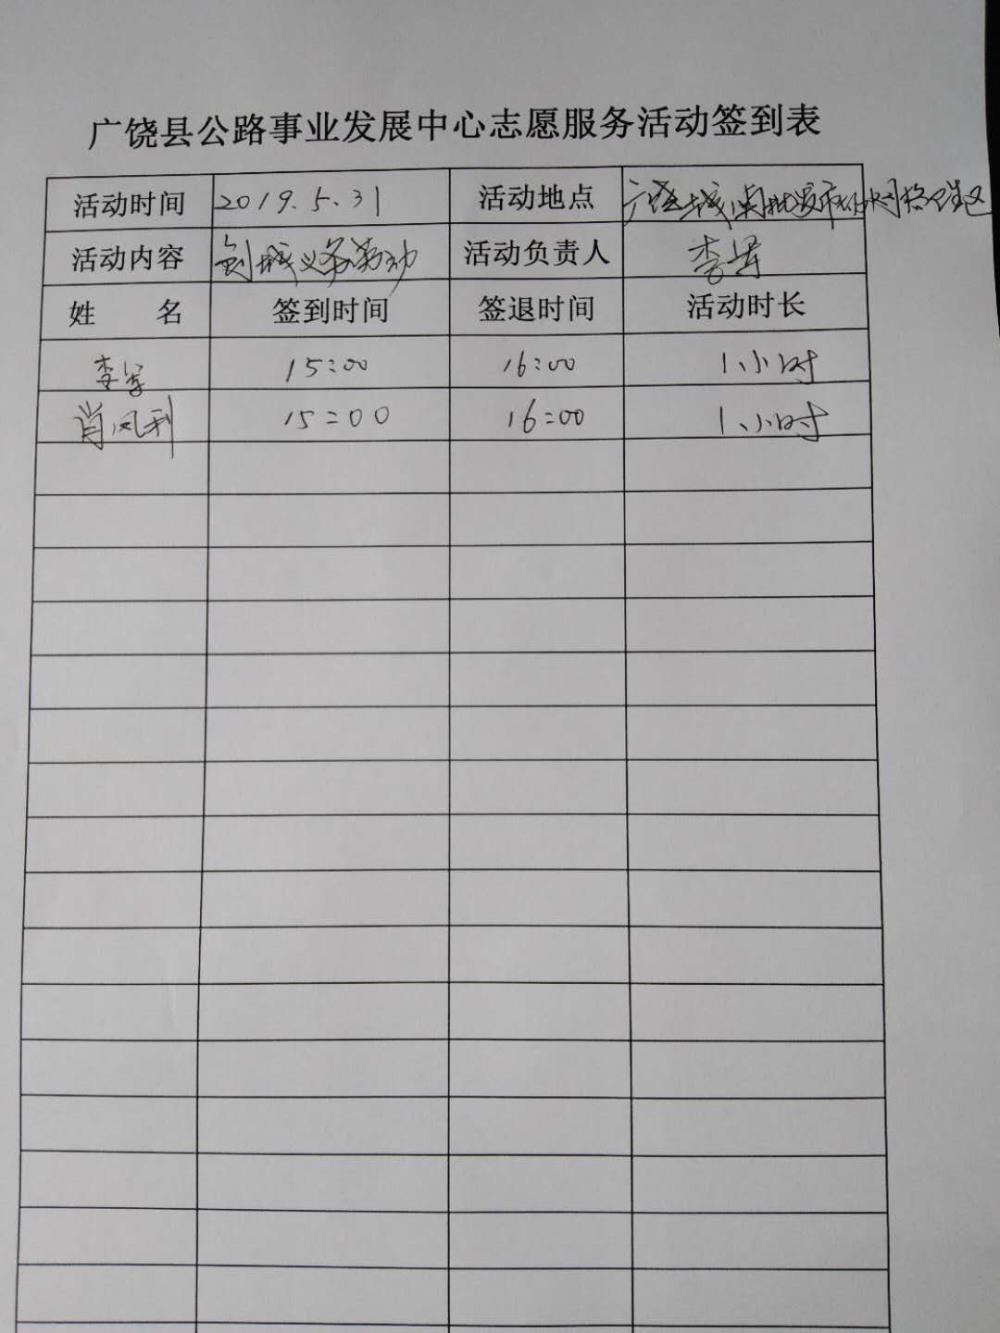 广饶县公路事业发展中心志愿服务活动签到表
活动时间 2019.5.31 活动地点 广饶城南
活动内容 创城义务劳动 活动负责人 李军
姓 名 签到时间 签退时间 活动时长
李军 15:00 16:00 1小时
肖风利 15:00 16:00 1小时